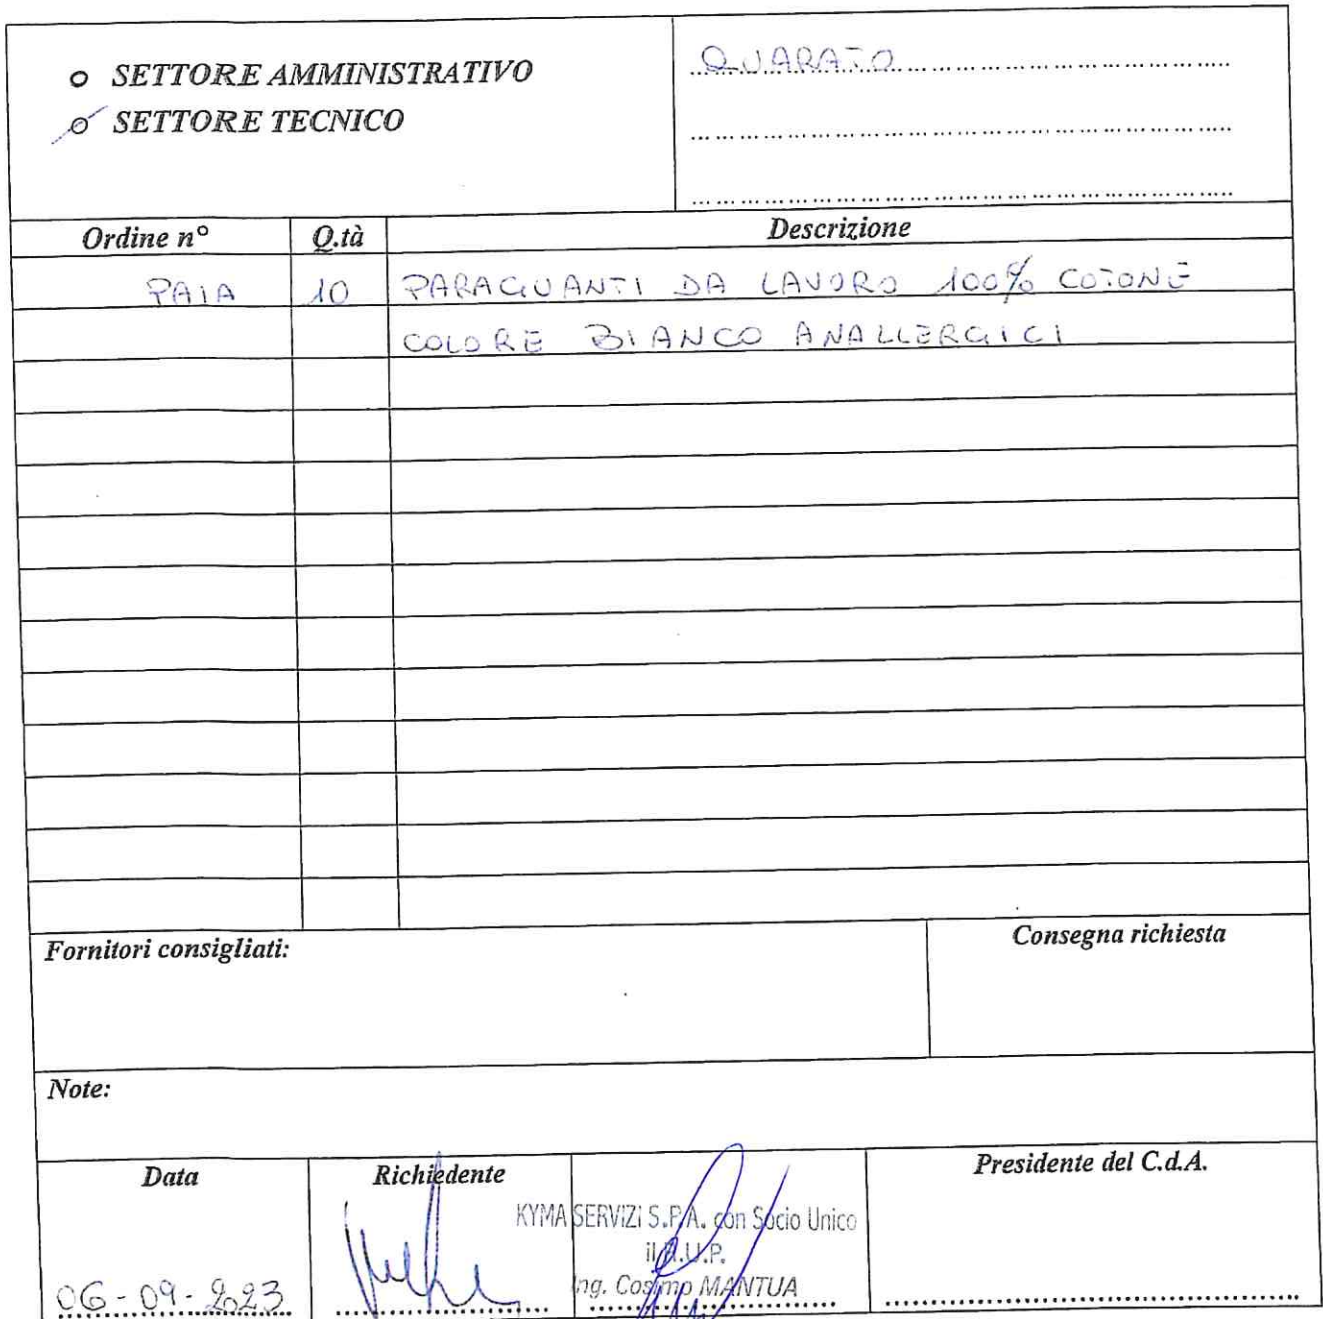 o SETTORE AMMINISTRATIVO
o SETTORE TECNICO
QUARATO
Ordine n° Q.tà Descrizione
PAIA 10 PARAGUANTI DA LAVORO 100% COTONE
COLORE BIANCO ANALLERGICI
Fornitori consigliati: Consegna richiesta
Note:
Data Richiedente Presidente del C.d.A.
KYMA SERVIZI S.P.A. con Socio Unico
il R.U.P.
Ing. Cosimo MANTUA
06-09-2023